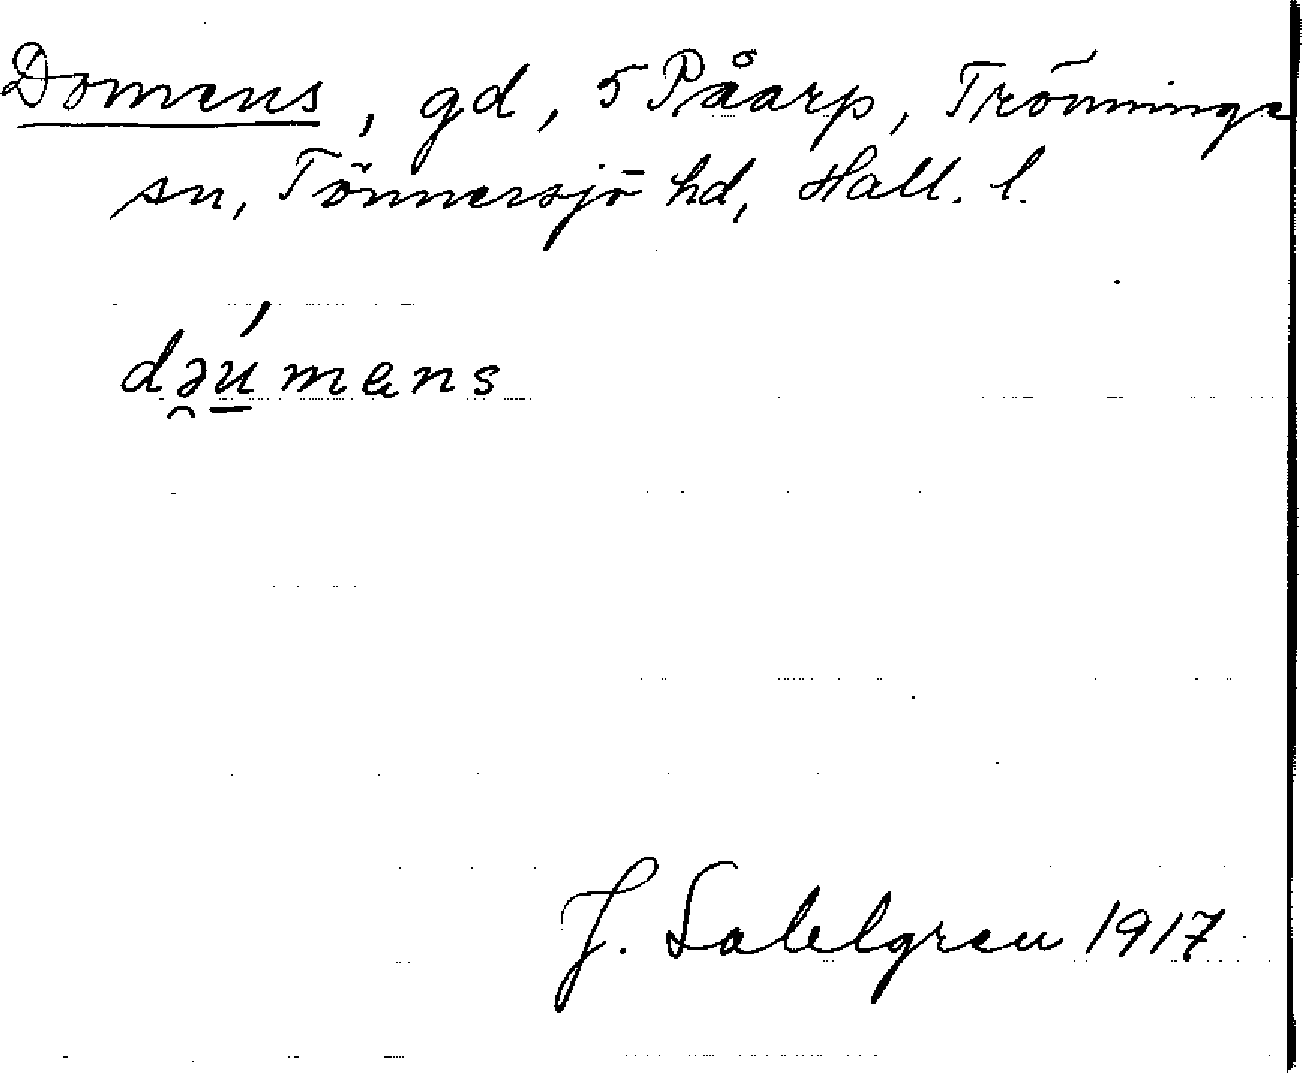 Domens, gd, 5 Påarp, Trönninge
sn, Tönnersjö hd, Hall. l.
də̯ú̲mens
J. Sahlgren 1917